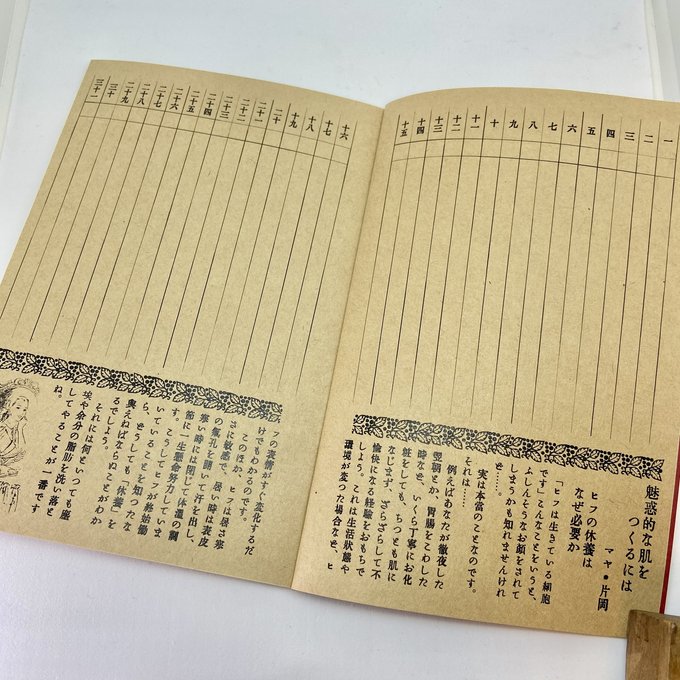 一
二
三
四
五
六
七
八
九
十
十一
十二
十三
十四
十五
魅惑的な肌を
つくるには
マヤ・片岡
ヒフの休養は
なぜ必要か
「ヒフは生きている細胞
です」こんなことをいうと、
ふしんそうなお顔をされて
しまうかも知れませんけれ
ど……。
実は本当のことなのです。
それは……
例えばあなたが徹夜した
翌朝とか、胃腸をこわした
時など、いくら丁寧にお化
粧をしても、ちつとも肌に
なじまず、ざらざらして不
愉快になる経験をおもちで
しよう。これは生活状態や
環境が変つた場合など、ヒ
十六
十七
十八
十九
二十
二十一
二十二
二十三
二十四
二十五
二十六
二十七
二十八
二十九
三十
三十一
フの表情がすぐ変化するだ
けでもわかるのです。
このほか、ヒフは暑さ寒
さに敏感で、暑い時は表皮
の気孔を開いて汗を出し、
寒い時には閉じて体温の調
節に一生懸命努力していま
す。こうしてヒフが終始働
いていることを知つたな
ら、どうしても「休養」を
與えねばならぬことがわか
るでしよう。
それには何といつても塵
埃や余分の脂肪を洗い落と
してやることが一番です
ね。